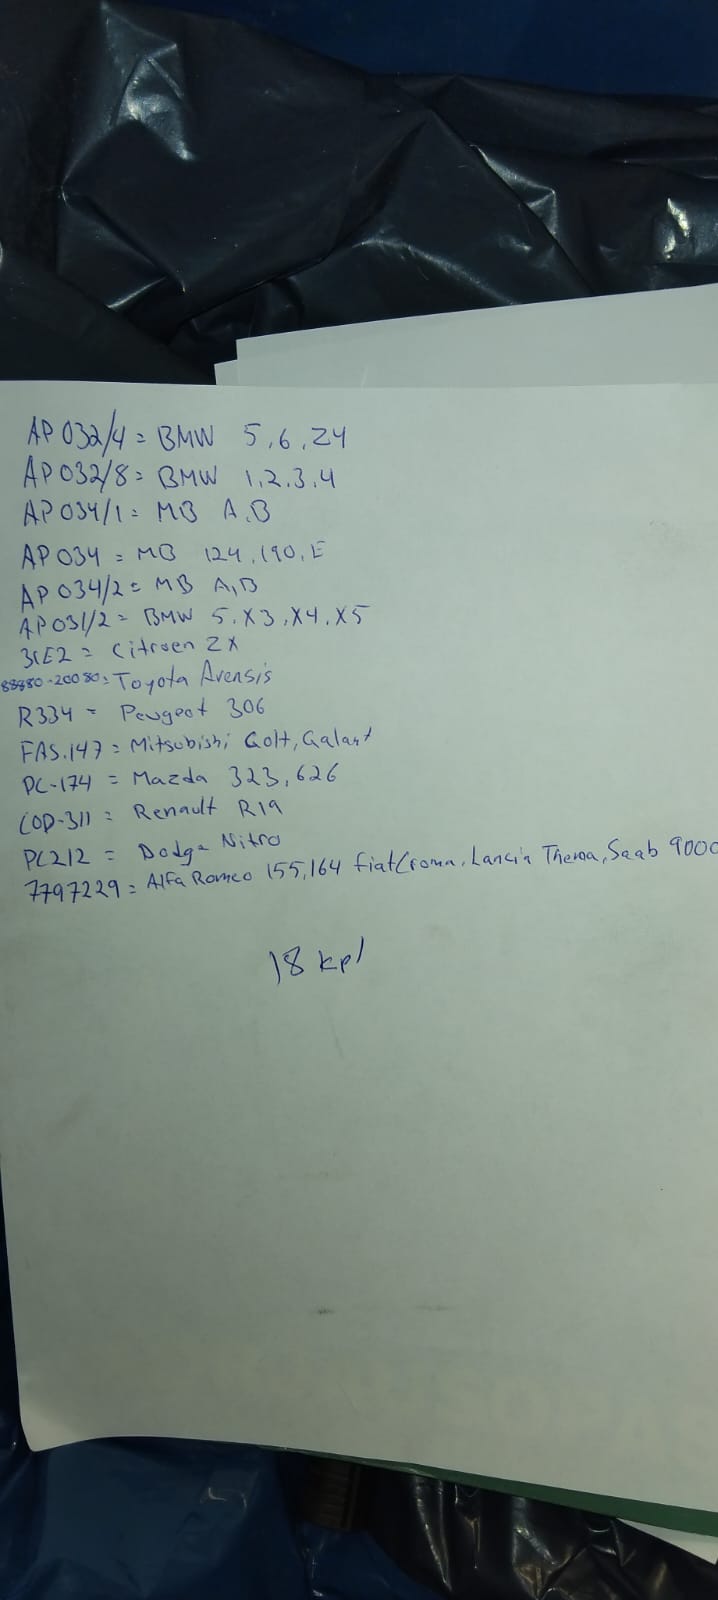 AP 032/4 = BMW 5, 6, Z4
AP 032/8 = BMW 1, 2, 3, 4
AP 034/1 = MB A, B
AP 034 = MB 124, 190, E
AP 034/2 = MB A, B
AP 031/2 = BMW 5, X3, X4, X5
31E2 = Citroen ZX
88880-20080 = Toyota Avensis
R334 = Peugeot 306
FAS.147 = Mitsubishi Colt, Galant
PC-174 = Mazda 323, 626
COD-311 = Renault R19
PC212 = Dodge Nitro
7797229 = Alfa Romeo 155, 164 Fiat Croma, Lancia Thema, Saab 9000
18 kpl